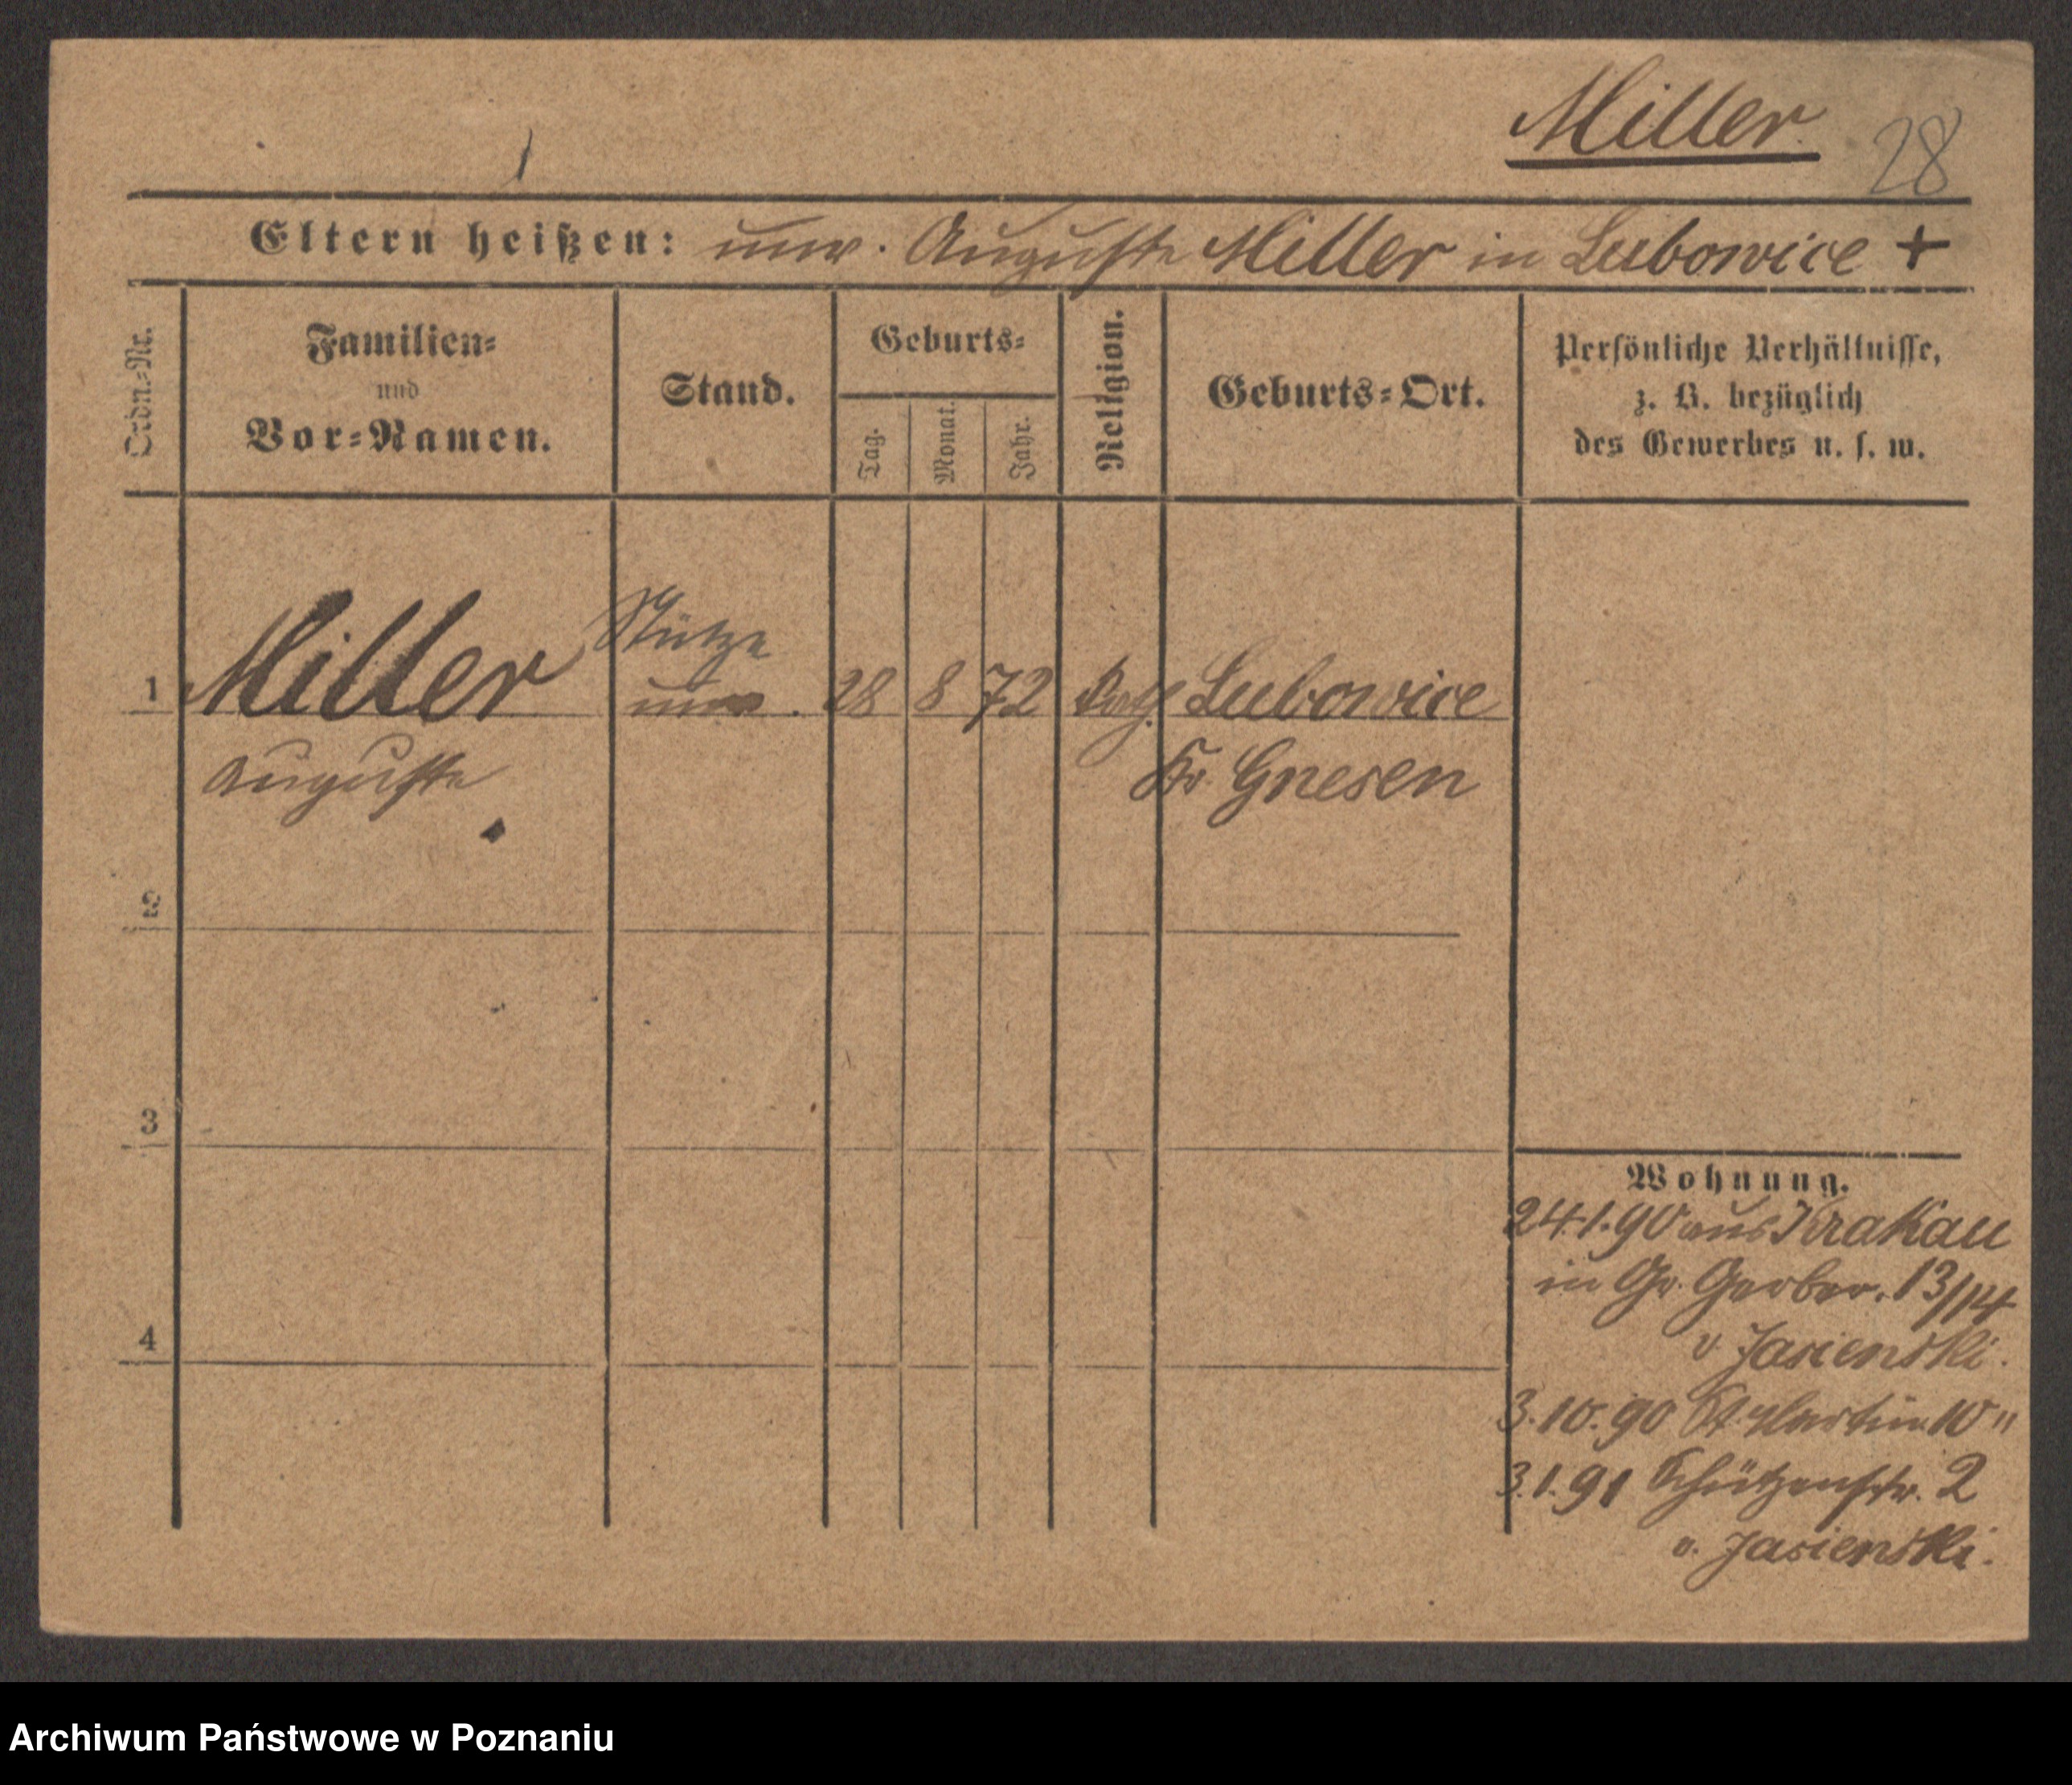 Miller.
28
Eltern heißen: unv. Auguste Miller in Lubowice +
Ordn.-Nr.
Familien-
und
Vor-Namen.
Stand.
Geburts-
Tag.
Monat.
Jahr.
Religion.
Geburts-Ort.
Persönliche Verhältnisse,
z. B. bezüglich
des Gewerbes u. s. w.
Stütze
1 Miller unv. 28 8 72 kath Lubowice
Auguste Kr. Gnesen
2
3
Wohnung.
24.1.90 aus Krakau
in Gr. Gerber. 13/14
v. Jasienski.
4
3.10.90 St. Martin 10 "
3.1.91 Schützenstr. 2
v. Jasienski.
Archiwum Państwowe w Poznaniu